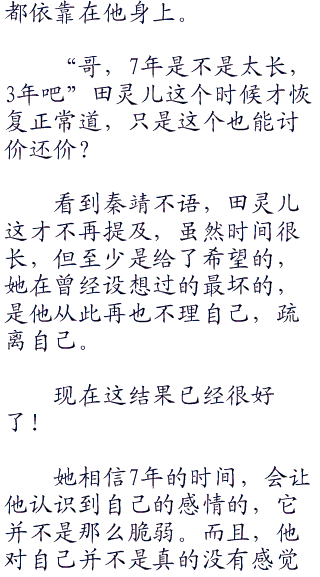 都依靠在他身上。
“哥，7年是不是太长，
3年吧”田灵儿这个时候才恢
复正常道，只是这个也能讨
价还价？
看到秦靖不语，田灵儿
这才不再提及，虽然时间很
长，但至少是给了希望的，
她在曾经设想过的最坏的，
是他从此再也不理自己，疏
离自己。
现在这结果已经很好
了！
她相信7年的时间，会让
他认识到自己的感情的，它
并不是那么脆弱。而且，他
对自己并不是真的没有感觉